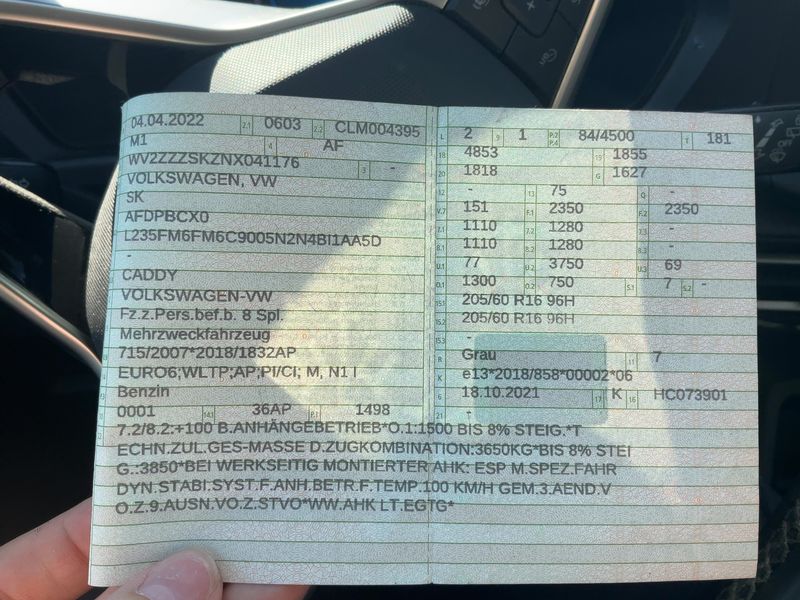 04.04.2022 2.1 0603 2.2 CLM004395
M1 4 AF
WV2ZZZSKZNX041176 3 -
VOLKSWAGEN, VW
SK
AFDPBCX0
L235FM6FM6C9005N2N4BI1AA5D
-
CADDY
VOLKSWAGEN-VW
Fz.z.Pers.bef.b. 8 Spl.
Mehrzweckfahrzeug
715/2007*2018/1832AP
EURO6;WLTP;AP;PI/CI; M, N1 I
Benzin
0001 14.1 36AP P.1 1498
L 2 9 1 P.2 P.4 84/4500 T 181
18 4853 19 1855
20 1818 G 1627
12 - 13 75 Q -
V.7 151 F.1 2350 F.2 2350
7.1 1110 7.2 1280 7.3 -
8.1 1110 8.2 1280 8.3 -
U.1 77 U.2 3750 U.3 69
O.1 1300 O.2 750 S.1 7 S.2 -
15.1 205/60 R16 96H
15.2 205/60 R16 96H
15.3 -
R Grau 11 7
K e13*2018/858*00002*06
6 18.10.2021 17 K 16 HC073901
21 -
7.2/8.2:+100 B.ANHÄNGEBETRIEB*O.1:1500 BIS 8% STEIG.*T
ECHN.ZUL.GES-MASSE D.ZUGKOMBINATION:3650KG*BIS 8% STEI
G.:3850*BEI WERKSEITIG MONTIERTER AHK: ESP M.SPEZ.FAHR
DYN.STABI.SYST.F.ANH.BETR.F.TEMP.100 KM/H GEM.3.AEND.V
O.Z.9.AUSN.VO.Z.STVO*WW.AHK LT.EGTG*